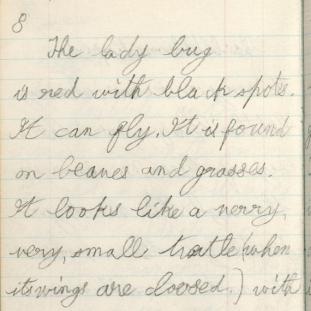 8
The lady bug
is red with black spots.
It can fly. It is found
on beaves and grasses.
It looks like a verry,
very, small trutle (when
its wings are cloosed.) with